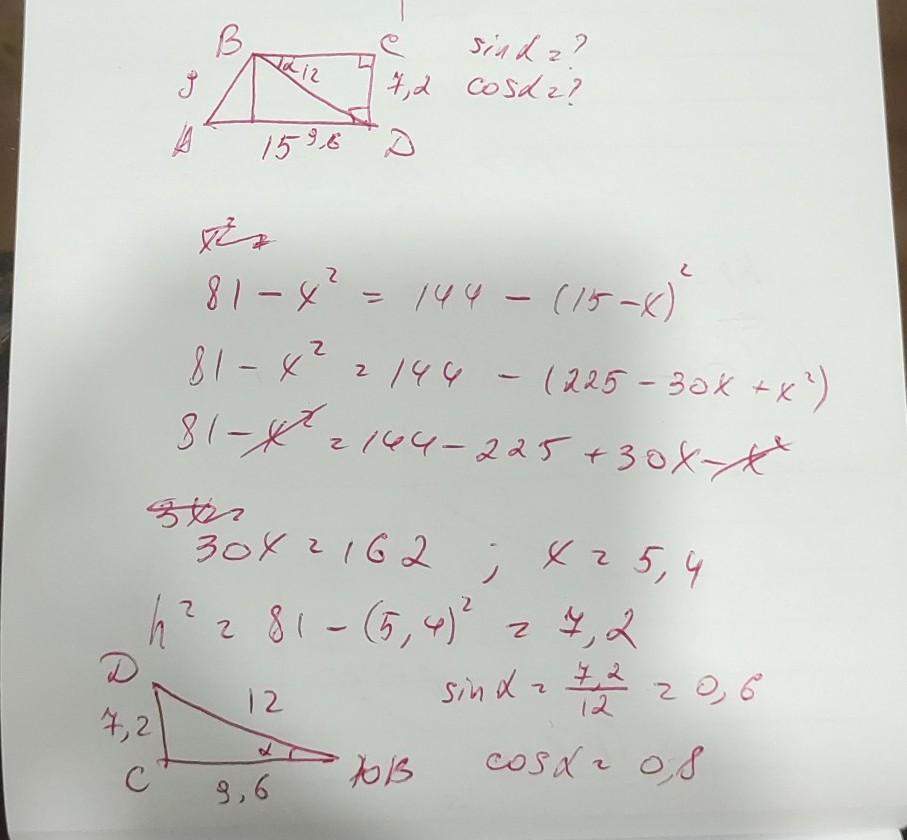 B C sin α = ?
9 α 12 7,2 cos α = ?
A 15 9,6 D
x² =
81 - x² = 144 - (15 - x)²
81 - x² = 144 - (225 - 30x + x²)
81 - x² = 144 - 225 + 30x - x²
30x = 162 ; x = 5,4
h² = 81 - (5,4)² = 7,2
D 12 sin α = 7,2/12 = 0,6
7,2 α
C 9,6 B cos α = 0,8